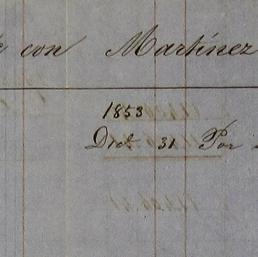 con Martinez
1853
Dre. 31 Por